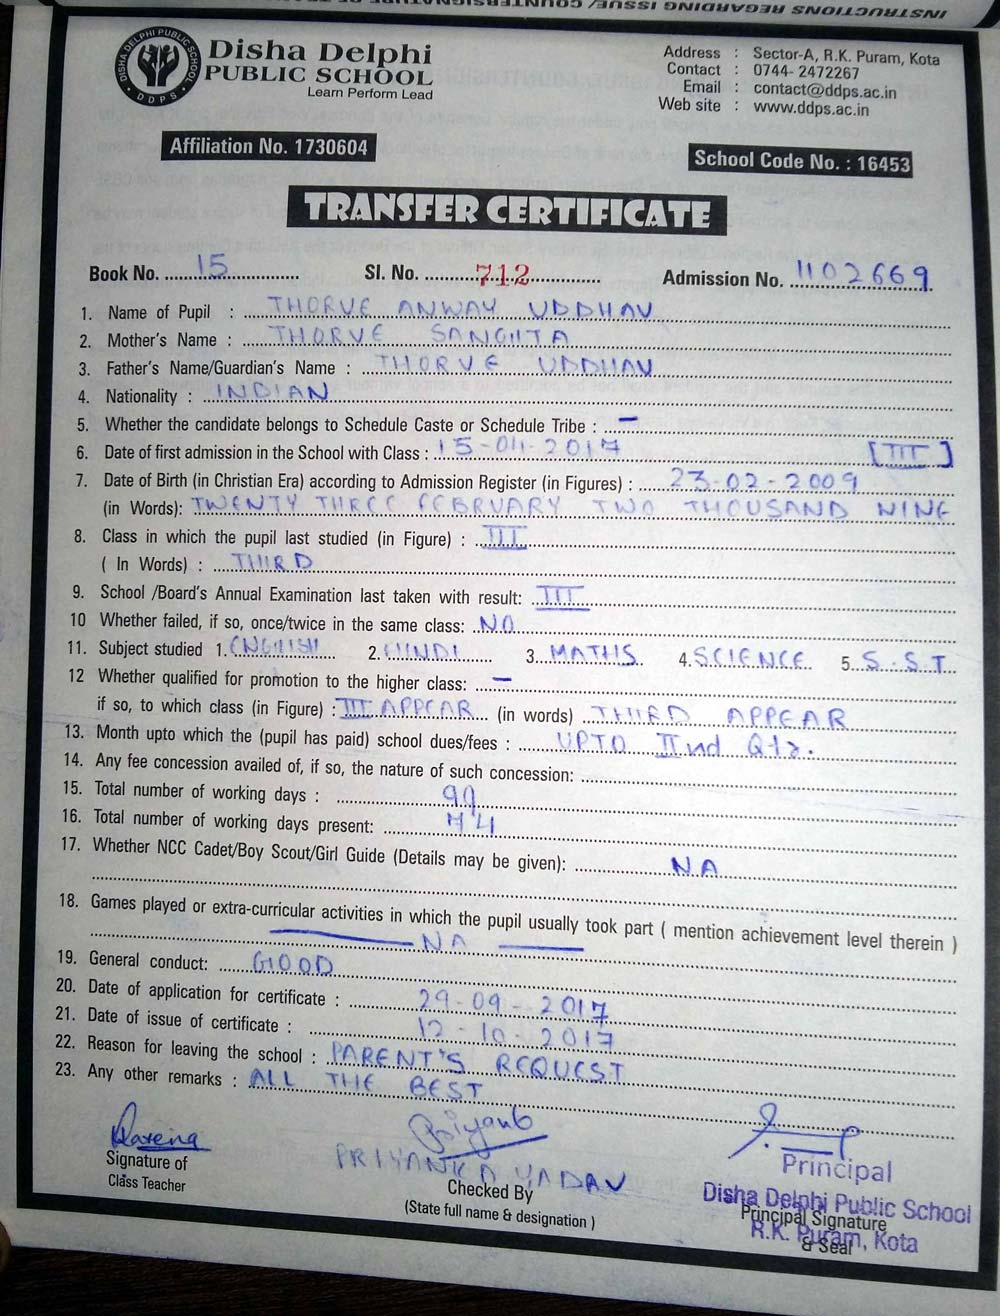 INSTRUCTIONS REGARDING ISSUE/ COUNTERSIGNATURE OF
DISHA DELPHI PUBLIC SCHOOL
D D P S
Disha Delphi
PUBLIC SCHOOL
Learn Perform Lead
Address : Sector-A, R.K. Puram, Kota
Contact : 0744- 2472267
Email : contact@ddps.ac.in
Web site : www.ddps.ac.in
Affiliation No. 1730604
School Code No. : 16453
TRANSFER CERTIFICATE
Book No. 15 Sl. No. 712 Admission No. 1102669
1. Name of Pupil : THORVE ANWAY UDDHAV
2. Mother's Name : THORVE SANGITA
3. Father's Name/Guardian's Name : THORVE UDDHAV
4. Nationality : INDIAN
5. Whether the candidate belongs to Schedule Caste or Schedule Tribe : –
6. Date of first admission in the School with Class : 15-04-2017 [III]
7. Date of Birth (in Christian Era) according to Admission Register (in Figures) : 23-02-2009
(in Words): TWENTY THREE FEBRUARY TWO THOUSAND NINE
8. Class in which the pupil last studied (in Figure) : III
( In Words) : THIRD
9. School /Board's Annual Examination last taken with result: III
10 Whether failed, if so, once/twice in the same class: NO
11. Subject studied 1. ENGLISH 2. HINDI 3. MATHS 4. SCIENCE 5. S.S.T
12 Whether qualified for promotion to the higher class: –
if so, to which class (in Figure) : III APPEAR (in words) THIRD APPEAR
13. Month upto which the (pupil has paid) school dues/fees : UPTO IInd Qtr.
14. Any fee concession availed of, if so, the nature of such concession:
15. Total number of working days : 99
16. Total number of working days present:
17. Whether NCC Cadet/Boy Scout/Girl Guide (Details may be given): NA
18. Games played or extra-curricular activities in which the pupil usually took part ( mention achievement level therein )
NA
19. General conduct: GOOD
20. Date of application for certificate : 29-09-2017
21. Date of issue of certificate : 12-10-2017
22. Reason for leaving the school : PARENT'S REQUEST
23. Any other remarks : ALL THE BEST
Signature of
Class Teacher
PRIYANKA YADAV
Checked By
(State full name & designation )
Principal
Disha Delphi Public School
Principal Signature
R.K. Puram, Kota
& Seal